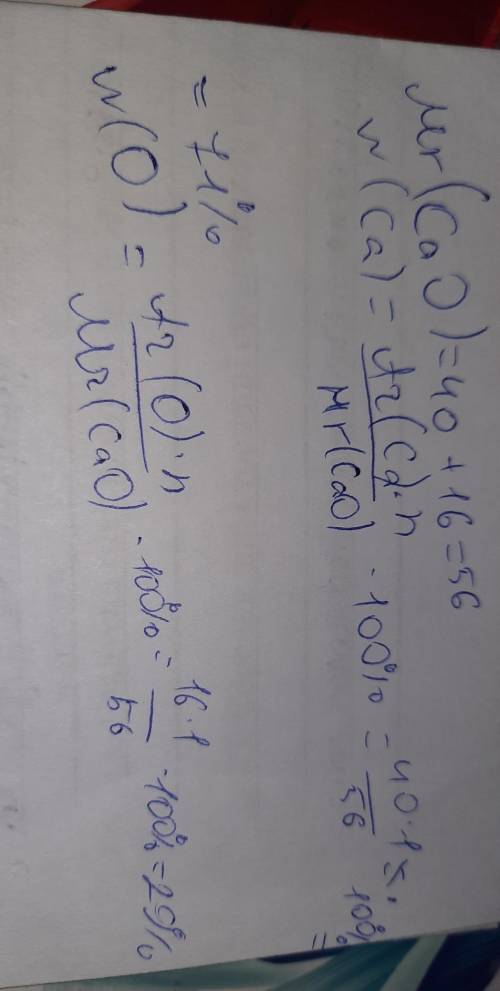 Mr(CaO)=40+16=56
w(Ca)= Ar(Ca)·n / Mr(CaO) · 100% = 40·1 / 56 x· 100% =
= 71%
w(O) = Ar(O)·n / Mr(CaO) · 100% = 16·1 / 56 · 100% = 29%